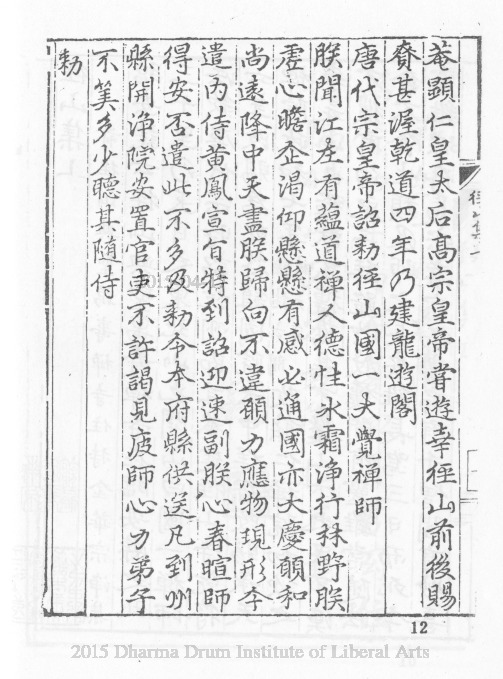 菴顯仁皇太后高宗皇帝甞遊幸徑山前後賜
賚甚渥乾道四年乃建龍遊閣
唐代宗皇帝詔勑徑山國一大覺禪師
朕聞江左有藴道禪人德性氷霜淨行林野朕
虚心瞻企渴仰懸懸有感必通國亦大慶願和
尚遠降中天盡朕歸向不違願力應物現形今
遣内侍黄鳳宣旨特到詔迎速副朕心春暄師
得安否遣此不多及勑令本府縣供送凡到州
縣開淨院安置官吏不許謁見疲師心力弟子
不筭多少聽其随侍
勑
12
2015 Dharma Drum Institute of Liberal Arts